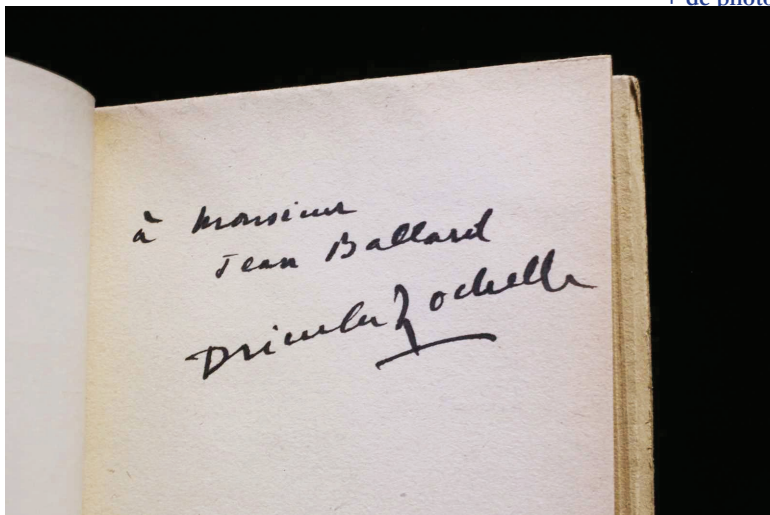 + de photo
à Monsieur
Jean Ballard
Drieu la Rochelle